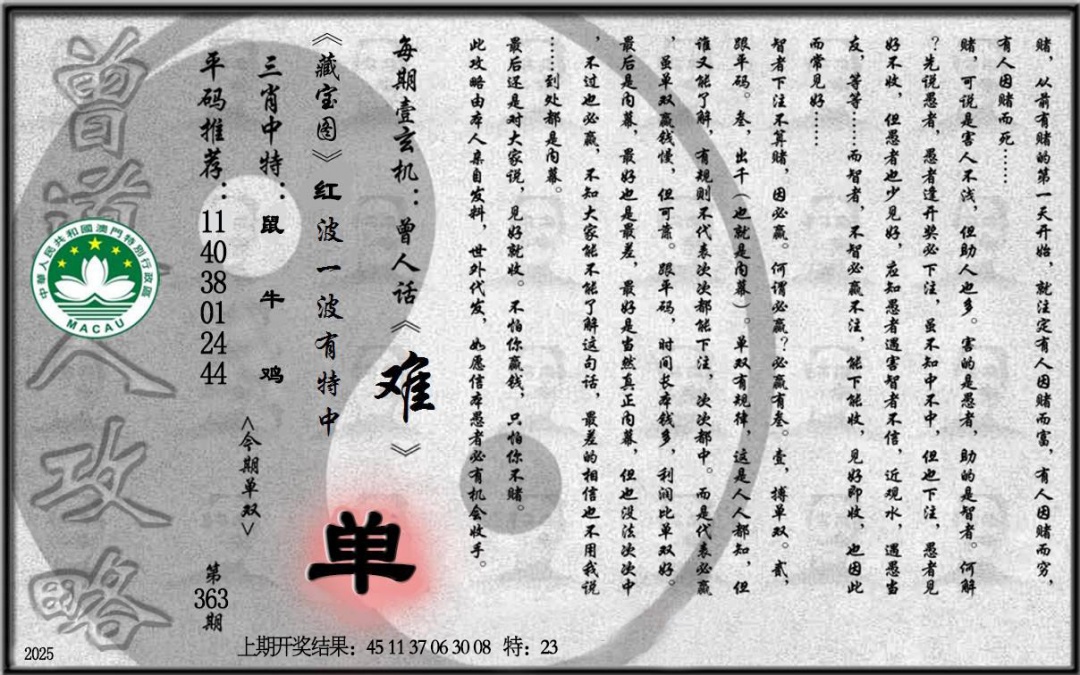 赌，从前有赌的第一天开始，就注定有人因赌而富，有人因赌而穷，
有人因赌而死……
赌，可说是害人不浅，但助人也多。害的是愚者，助的是智者。何解
？先说愚者，愚者逢开奖必下注，虽不知中不中，但也下注，愚者见
好不收，但愚者也少见好，应知愚者遇害智者不信，近观水，遇愚当
友，等等……而智者，不智必赢不注，能下能收，见好即收，也因此
而常见好……
智者下注不算赌，因必赢。何谓必赢？必赢有叁。壹，搏单双。贰，
跟单码。叁，出千（也就是内幕）。单双有规律，这是人人都知，但
谁又能了解，有规则不代表次次都能下注，次次都中。而是代表必赢
，虽单双赢钱慢，但可靠。跟单码，时间长本钱多，利润比单双好。
最后是内幕，最好也是最差，最好是当然真正内幕，但也没法次次中
，不过也必赢，不知大家能不能了解这句话，最差的相信也不用我说
……到处都是内幕。
最后还是对大家说，见好就收。不怕你赢钱，只怕你不赌。
此攻略由本人亲自发料，世外代发，如愿信本愚者必有机会收手。
每期壹玄机：曾人话《难》
《藏宝图》红波一波有特中
单
三肖中特：鼠 牛 鸡
<今期单双>
平码推荐：11 40 38 01 24 44
第363期
曾道人攻略
中華人民共和國澳門特別行政區
MACAU
2025
上期开奖结果：45 11 37 06 30 08 特：23